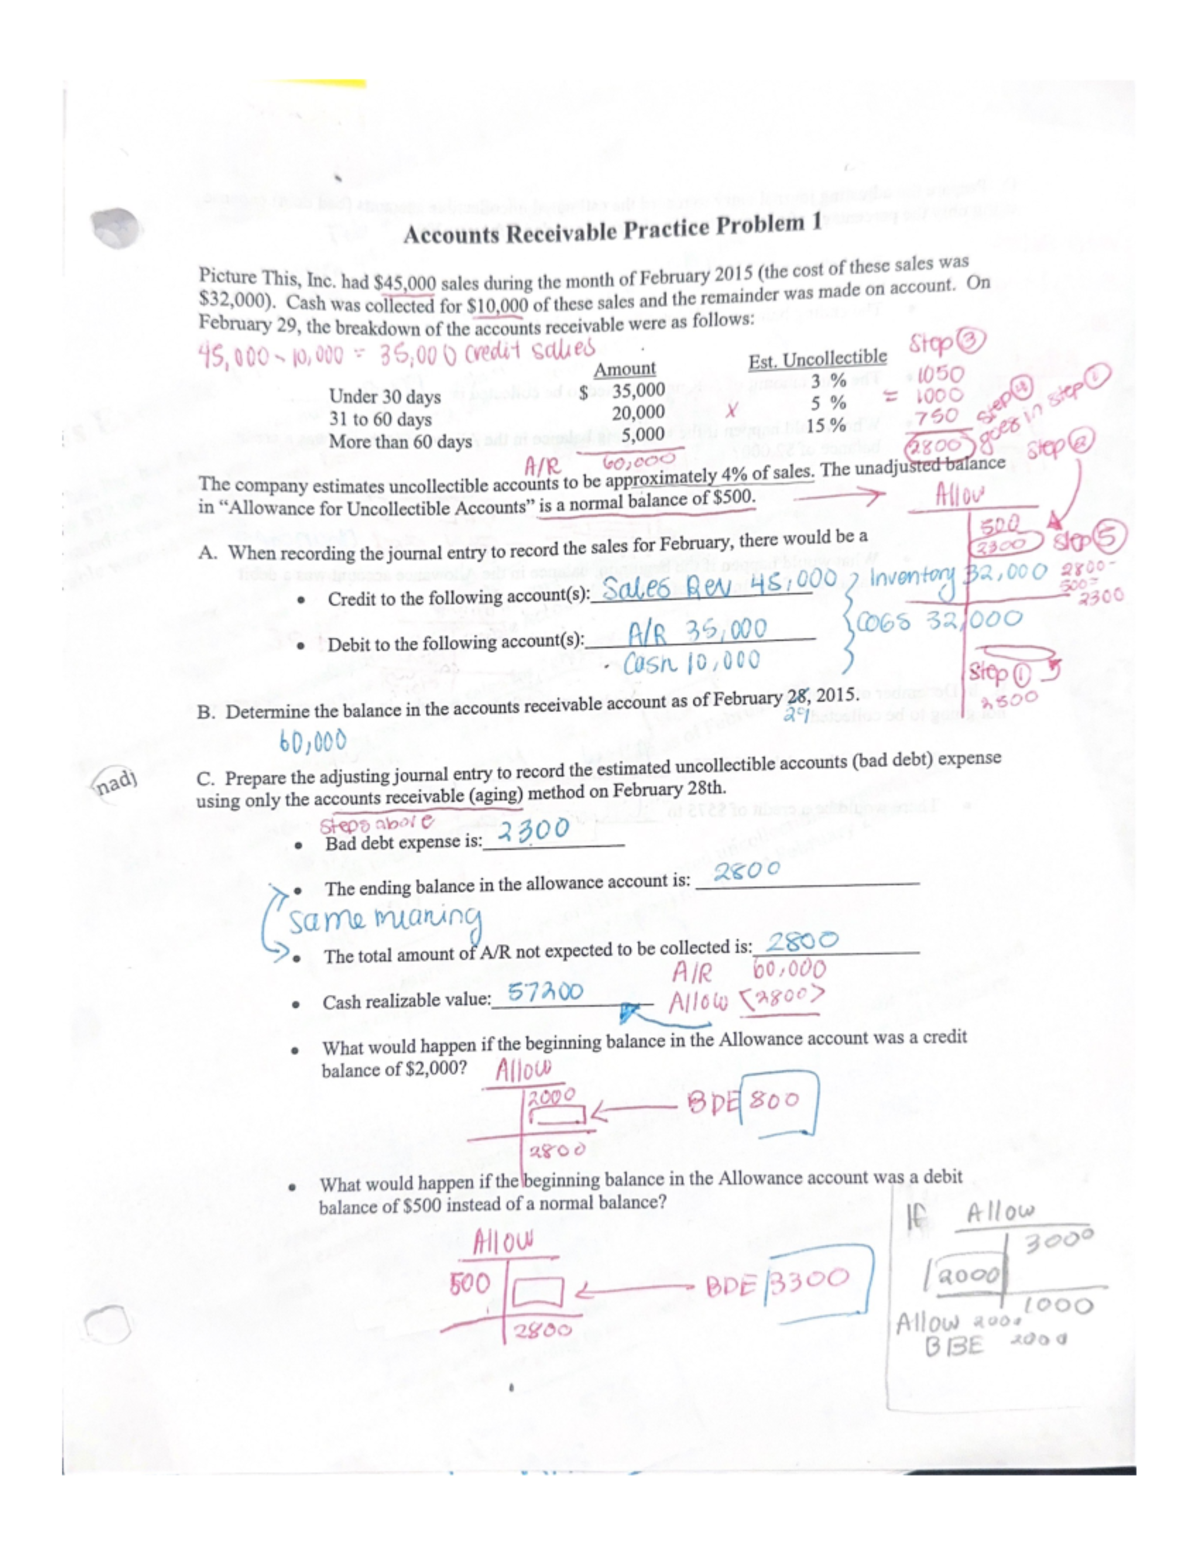 Accounts Receivable Practice Problem 1
Picture This, Inc. had $45,000 sales during the month of February 2015 (the cost of these sales was
$32,000). Cash was collected for $10,000 of these sales and the remainder was made on account. On
February 29, the breakdown of the accounts receivable were as follows:
45,000 - 10,000 = 35,000 credit sales
Step 3
Amount Est. Uncollectible
Under 30 days $ 35,000 3 % 1050
31 to 60 days 20,000 x 5 % = 1000
More than 60 days 5,000 15 % 750
A/R 60,000 2800
Step 4 goes in step 1
Step 2
The company estimates uncollectible accounts to be approximately 4% of sales. The unadjusted balance
in “Allowance for Uncollectible Accounts” is a normal balance of $500.
Allow
500
2300 Step 5
2800-
500=
2300
Step 1
2800
A. When recording the journal entry to record the sales for February, there would be a
• Credit to the following account(s): Sales Rev 45,000 Inventory 32,000
• Debit to the following account(s): A/R 35,000 COGS 32,000
Cash 10,000
B. Determine the balance in the accounts receivable account as of February 28, 2015.
29
60,000
nadj
C. Prepare the adjusting journal entry to record the estimated uncollectible accounts (bad debt) expense
using only the accounts receivable (aging) method on February 28th.
Steps above
• Bad debt expense is: 2300
• The ending balance in the allowance account is: 2800
same meaning
• The total amount of A/R not expected to be collected is: 2800
A/R 60,000
• Cash realizable value: 57200 Allow <2800>
• What would happen if the beginning balance in the Allowance account was a credit
balance of $2,000? Allow
2000
BDE 800
2800
• What would happen if the beginning balance in the Allowance account was a debit
balance of $500 instead of a normal balance?
Allow
500
BDE 3300
2800
If Allow
3000
2000
1000
Allow 2000
BBE 2000